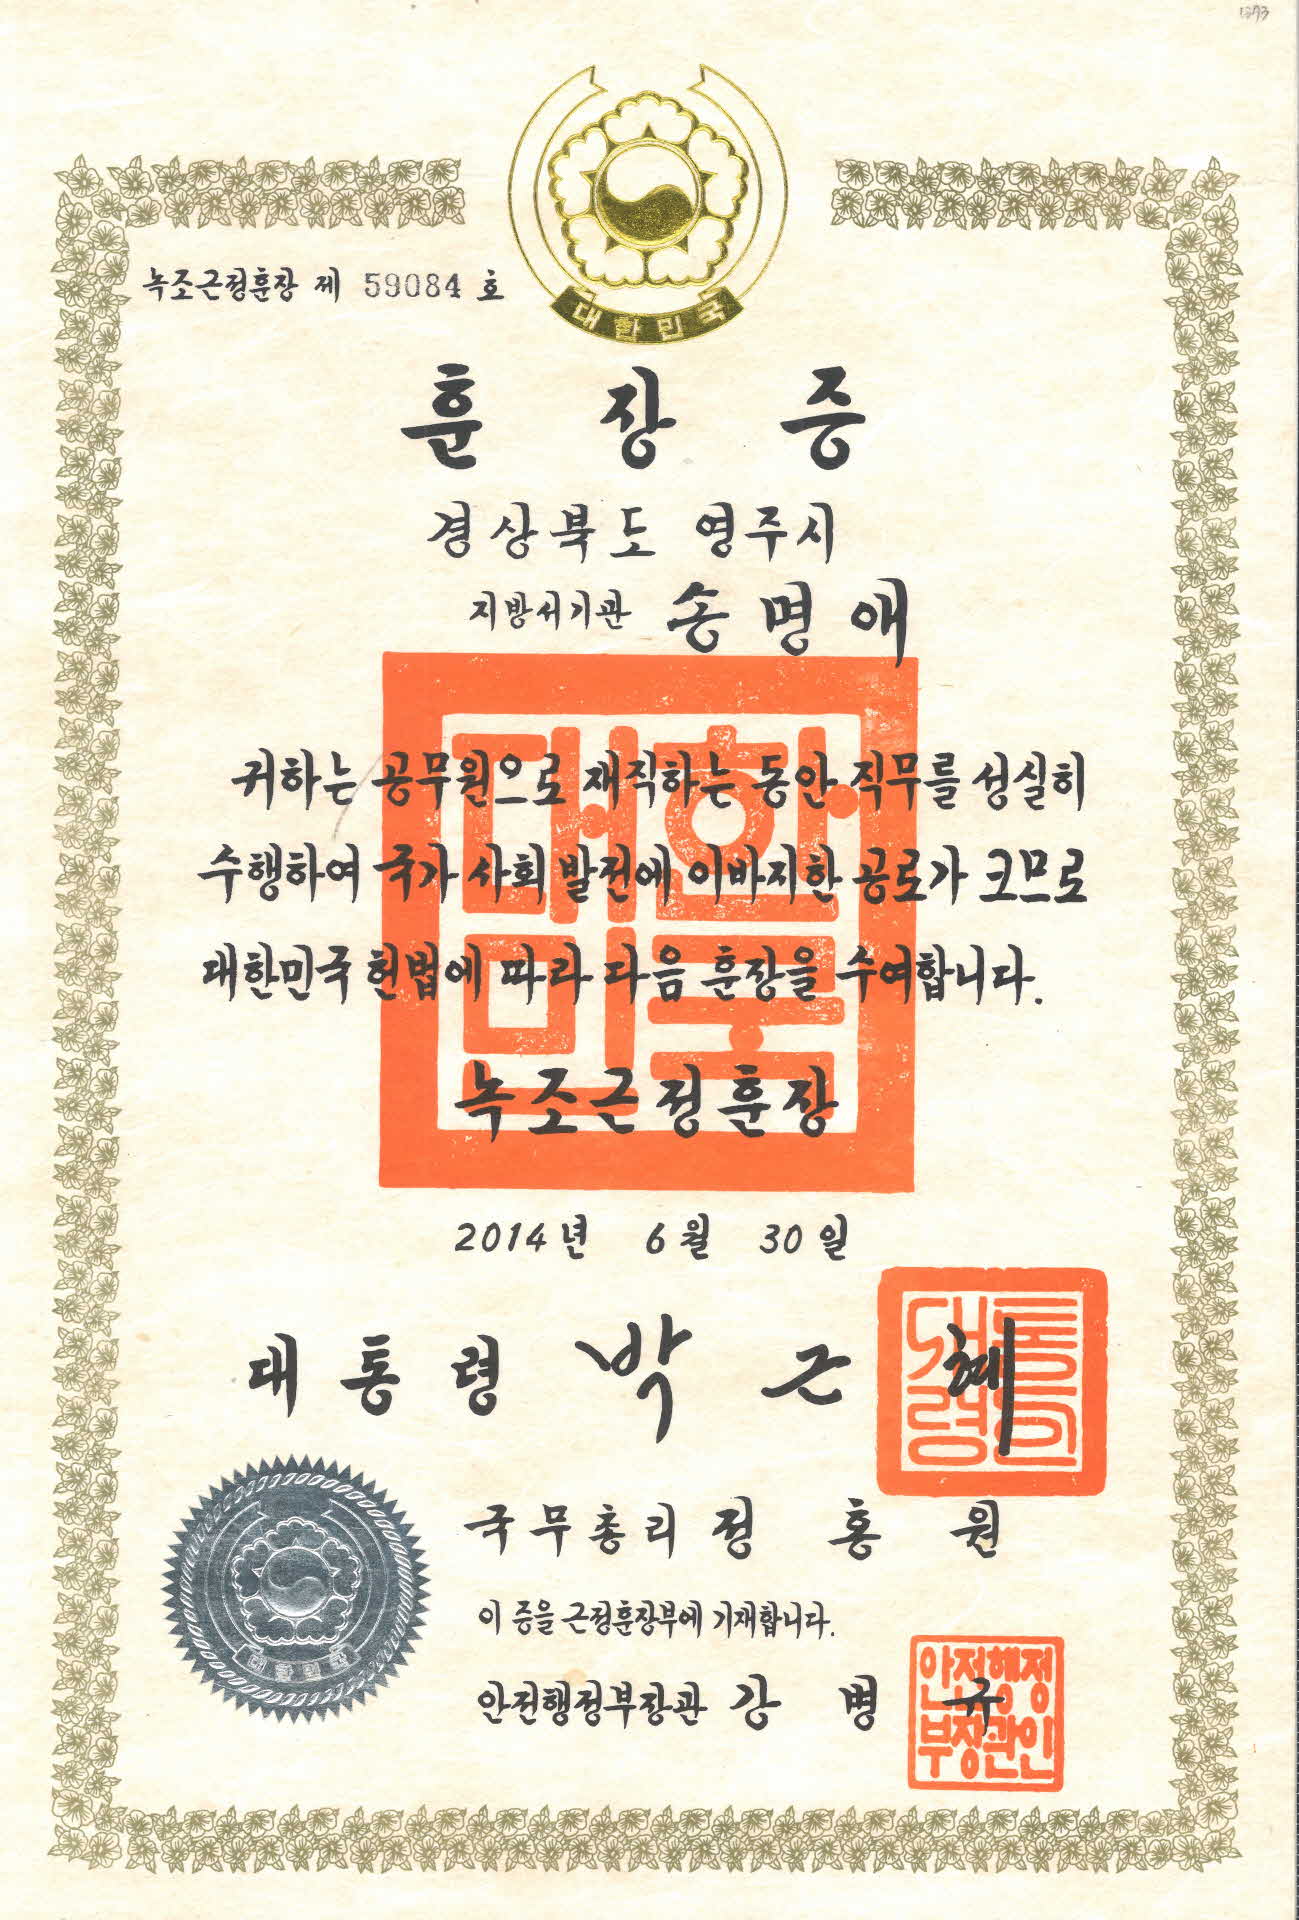 1273
대한민국
녹조근정훈장 제 59084 호
훈장증
경상북도 영주시
지방서기관 송명애
귀하는 공무원으로 재직하는 동안 직무를 성실히
수행하여 국가 사회 발전에 이바지한 공로가 크므로
대한민국 헌법에 따라 다음 훈장을 수여합니다.
대한
민국
녹조근정훈장
2014년 6월 30일
대통령 박근혜
대통령인
국무총리 정홍원
이 증을 근정훈장부에 기재합니다.
대한민국
안전행정부장관 강병규
안전행정
부장관인